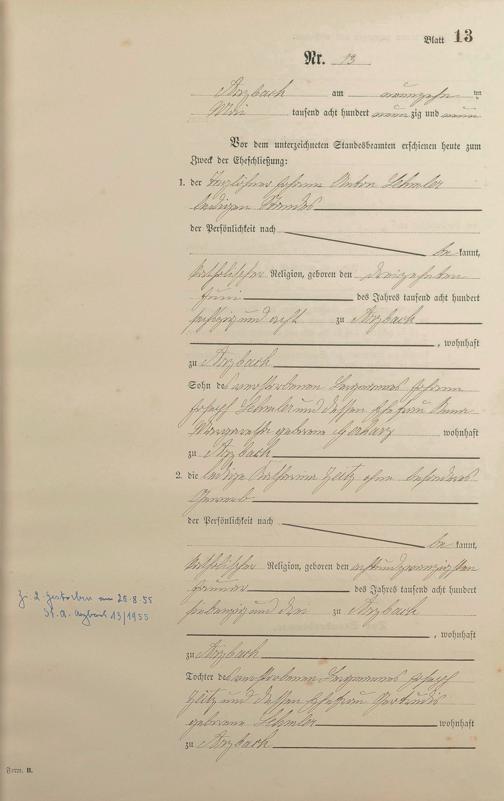 Blatt 13
Nr. 13
Arzbach am neunzehn ten
Mai tausend acht hundert neunzig und neun
Vor dem unterzeichneten Standesbeamten erschienen heute zum
Zweck der Eheschließung:
1. der Taglöhner Johann Anton Lehmler
ledigen Standes
der Persönlichkeit nach
be kannt,
katholischer Religion, geboren den dreizehnten
Juni des Jahres tausend acht hundert
sechszig und acht zu Arzbach
, wohnhaft
zu Arzbach
Sohn des verstorbenen Bergmannes Johann
Joseph Lehmler und dessen Ehefrau Anna
Margaretha geborene wohnhaft
zu Arzbach
2. die ledige Katharina Zeitz ohne besonderes
Gewerb
der Persönlichkeit nach
be kannt,
katholischer Religion, geboren den achtundzwanzigsten
Januar des Jahres tausend acht hundert
siebenzig und drei zu Arzbach
, wohnhaft
zu Arzbach
Tochter des verstorbenen Bergmannes Joseph
Zeitz und dessen Ehefrau Gertrudis
geborene Lehmler wohnhaft
zu Arzbach
Zu 2 gestorben am 28.8.55
St. A. Arzbach 13/1955
Form. B.